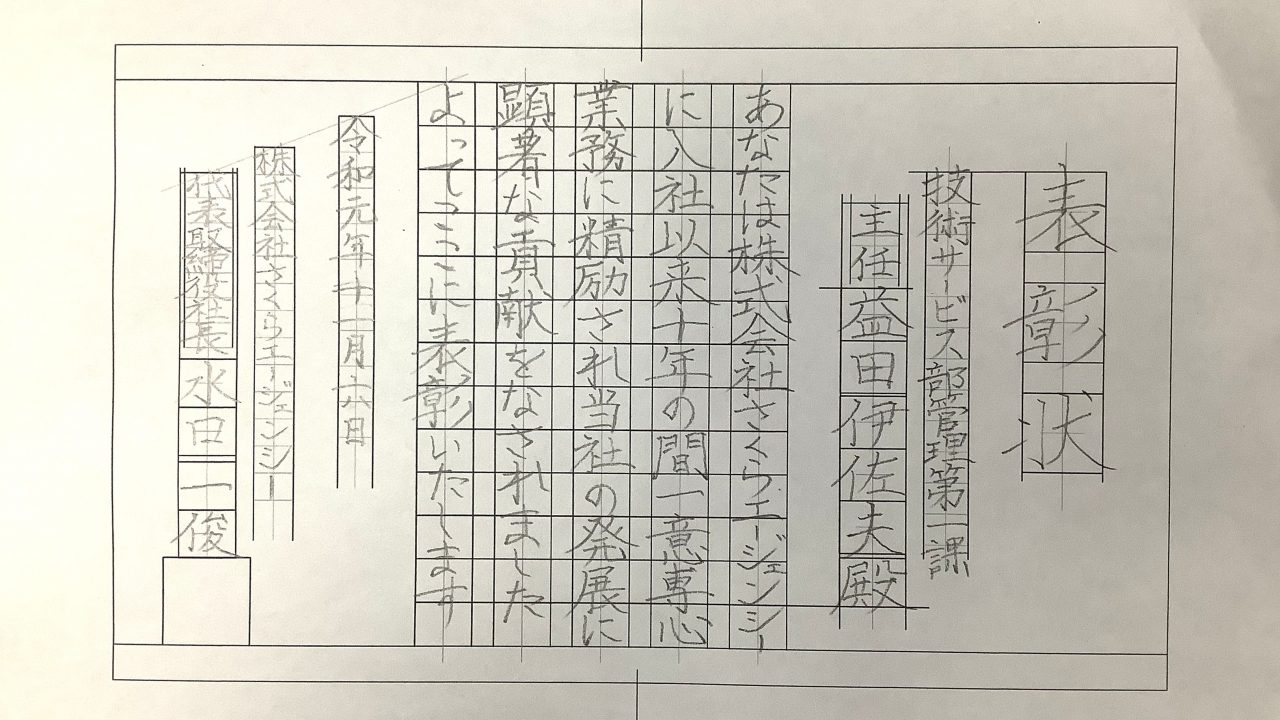 表彰状
技術サービス部管理第一課
主任益田伊佐夫殿
あなたは株式会社さくらエージェンシー
に入社以来十年の間一意専心
業務に精励され当社の発展に
顕著な貢献をなされました
よってここに表彰いたします
令和元年十一月六日
株式会社さくらエージェンシー
代表取締役社長水口一俊